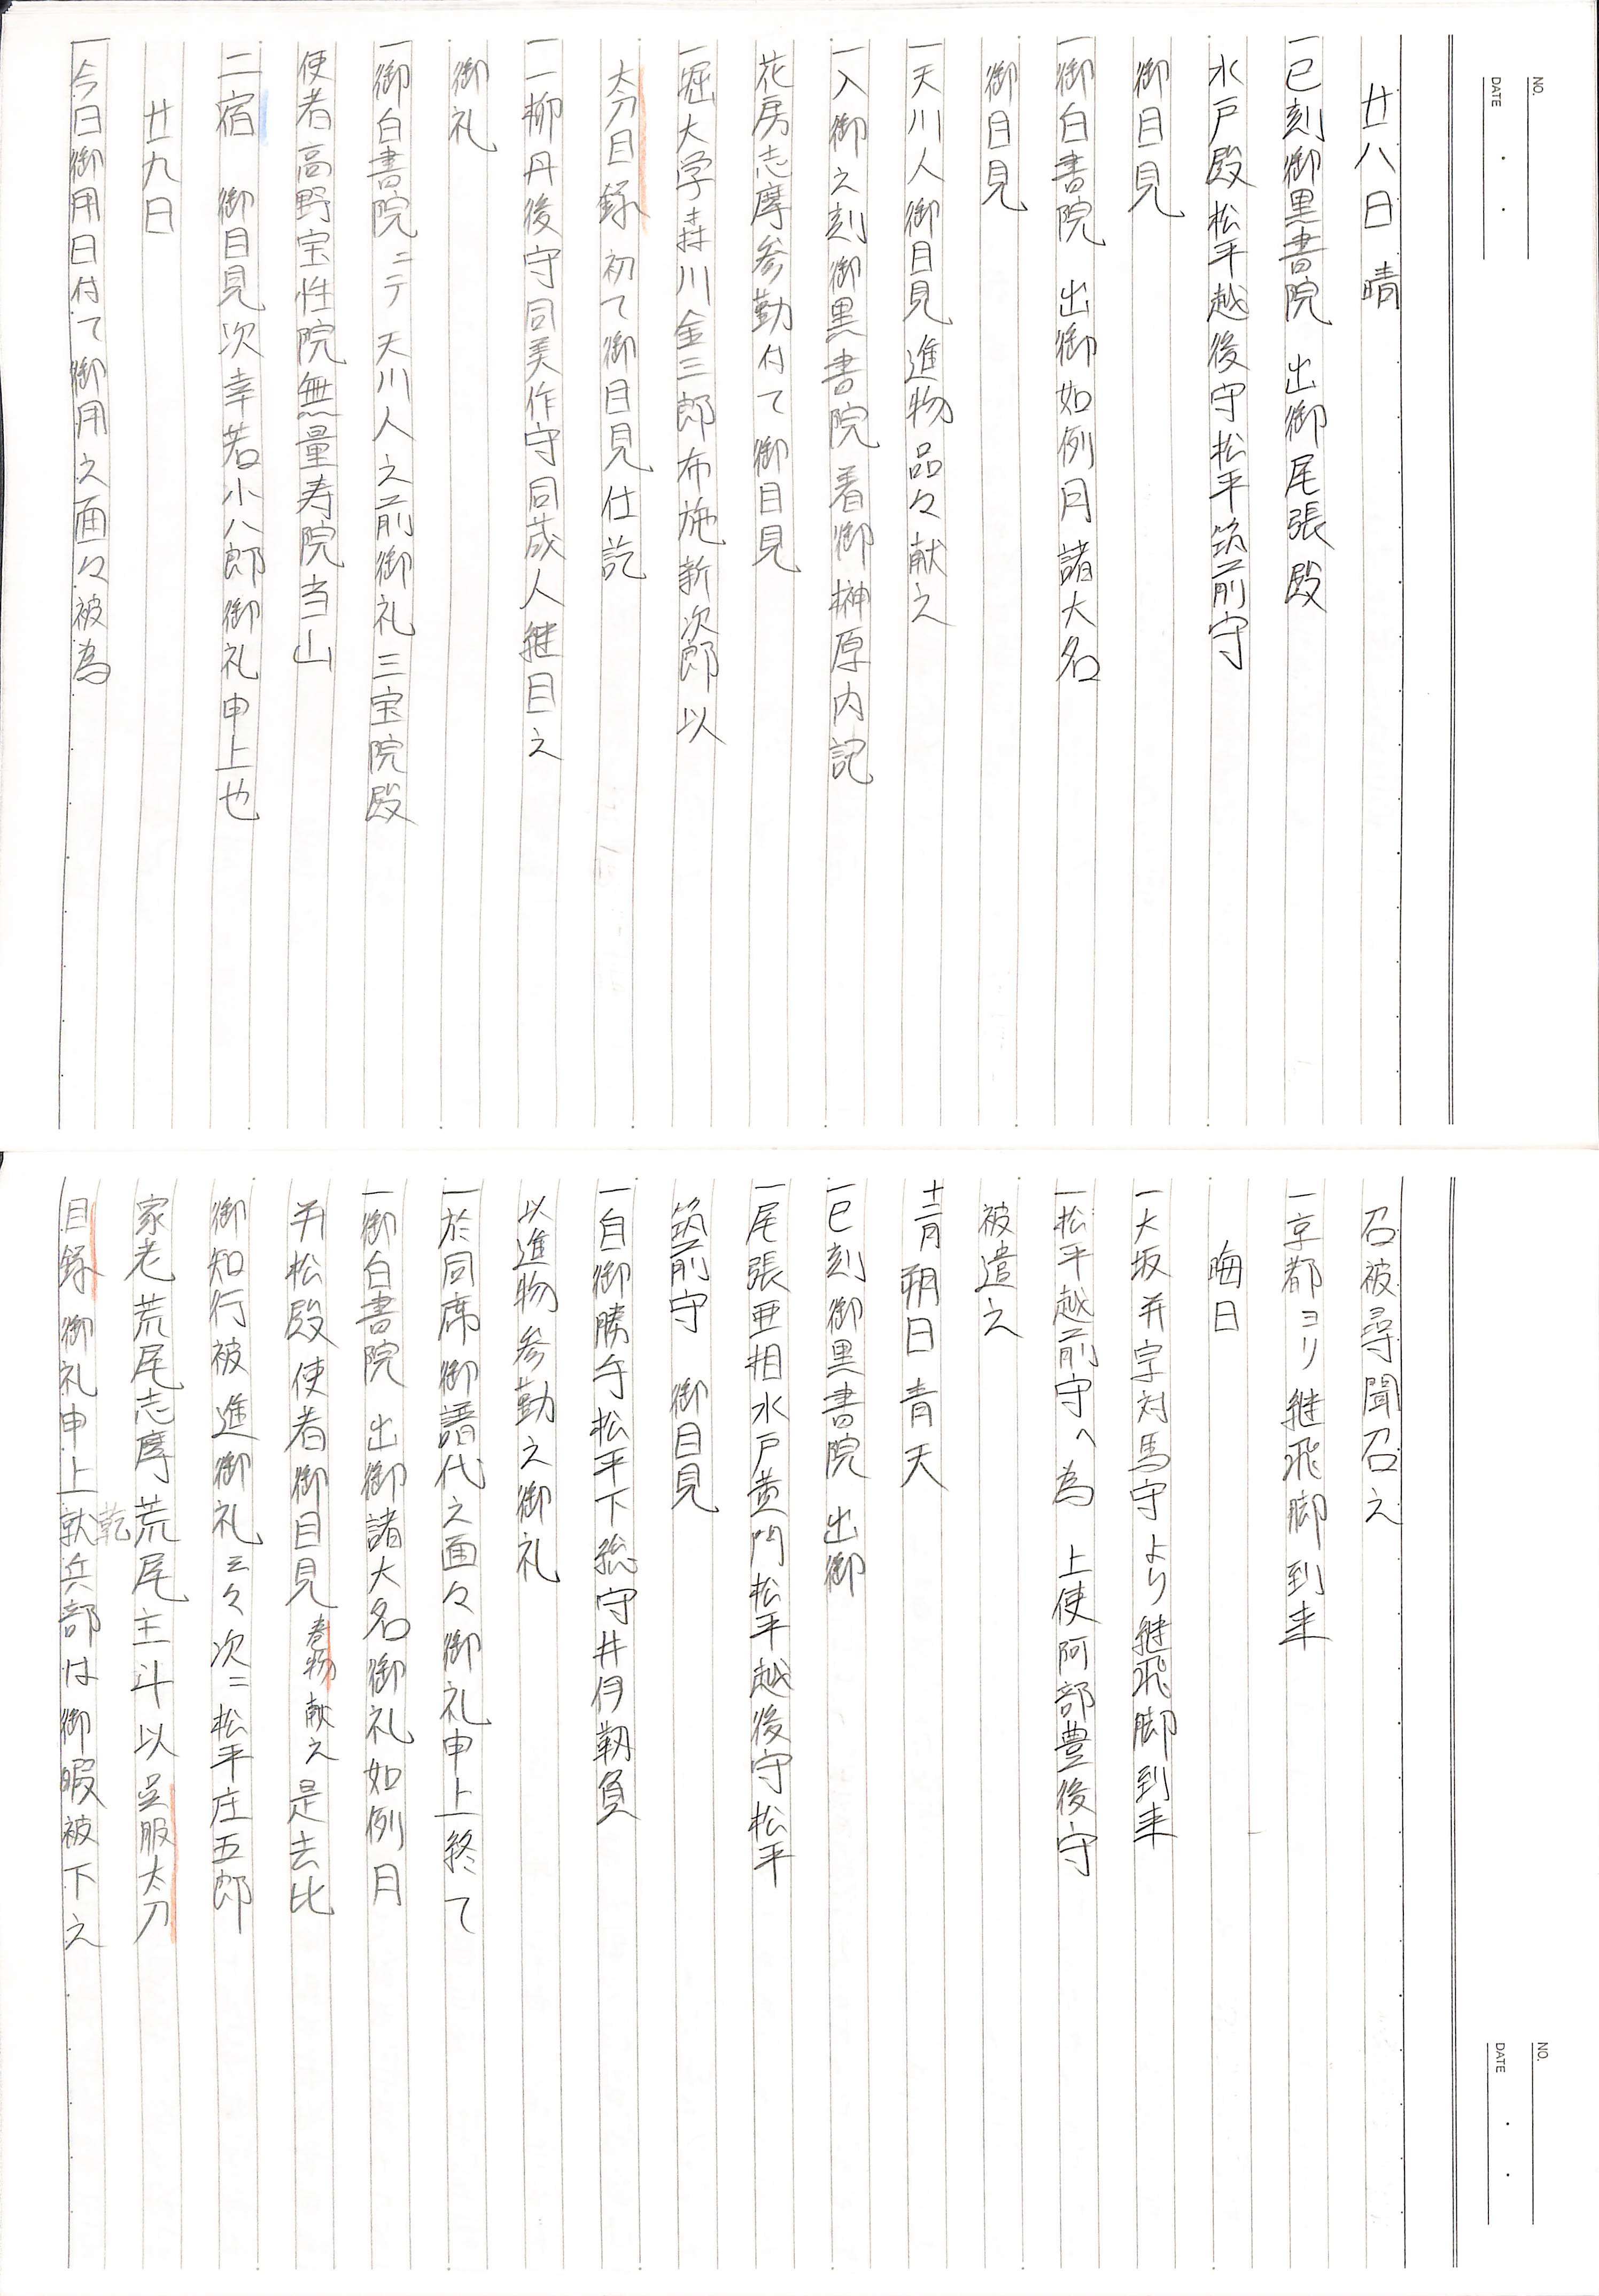 NO.
DATE
廿八日 晴
一巳刻御黒書院 出御尾張殿
水戸殿松平越後守松平筑前守
御目見
一御白書院 出御如例月諸大名
御目見
一天川人御目見進物品々献之
一入御之刻御黒書院着御榊原内記
花房志摩参勤付て御目見
一堀大学森川金三郎布施新次郎以
太刀目録初て御目見仕訖
一一柳丹後守同美作守同蔵人継目之
御礼
一御白書院ニテ天川人之前御礼三宝院殿
使者高野宝性院無量寿院当山
二宿 御目見次幸若小八郎御礼申上也
廿九日
一今日御用日付て御用之面々被為
NO.
DATE
召被尋聞召之
一京都ヨリ継飛脚到来
晦日
一大坂并宗対馬守より継飛脚到来
一松平越前守へ為 上使阿部豊後守
被遣之
十二月朔日 青天
一巳刻御黒書院 出御
一尾張亜相水戸黄門松平越後守松平
筑前守 御目見
一自御勝手松平下総守井伊靱負
以進物参勤之御礼
一於同席御譜代之面々御礼申上終て
一御白書院 出御諸大名御礼如例月
千松殿使者御目見 巻物献之 是去比
御知行被進御礼云々次ニ松平庄五郎
家老荒尾志摩荒尾主斗以呉服太刀
目録御礼申上乾兵部は御暇被下之